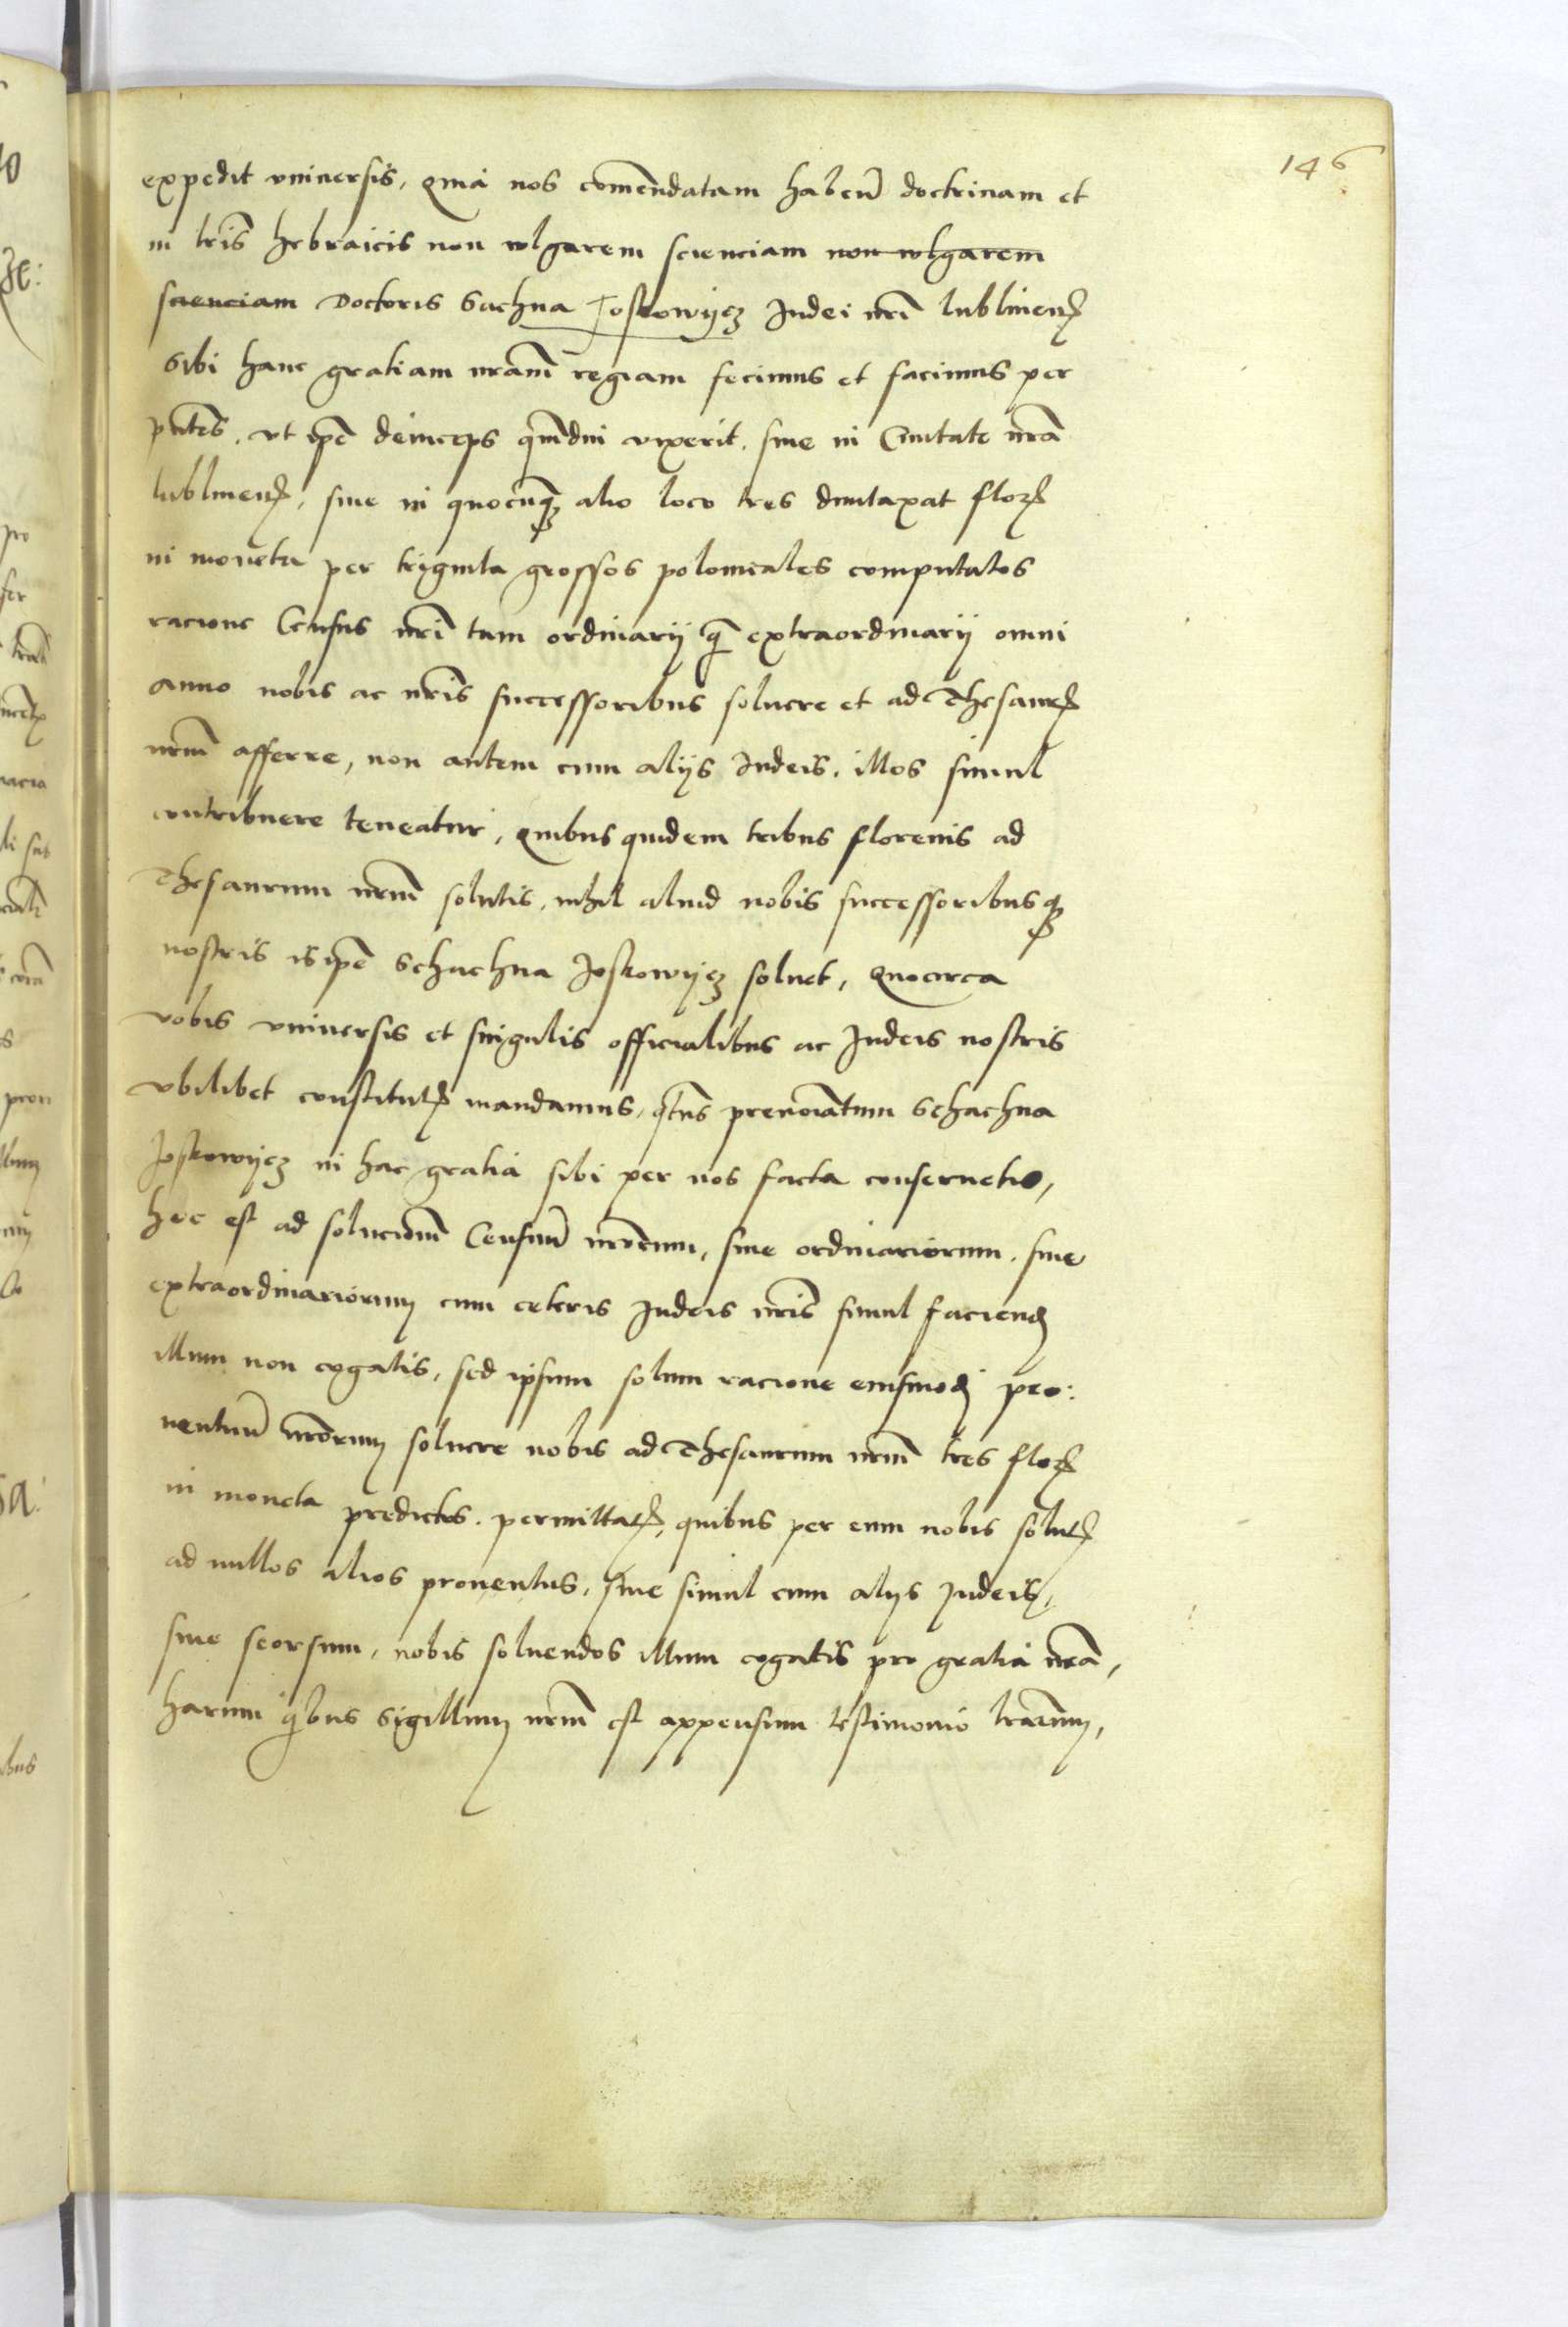 146
expedit vniuersis, Quia nos comendatam haben̄ doctrinam et
in lr̄is hebraicis non wlgarem scienciam non wlgarem
scienciam Doctoris Sachna Joskowycz Judei nr̄i lublinenꝭ
sibi hanc gratiam nr̄am regiam fecimus et facimus per
pn̄tes, vt ip̄e deinceps qm̄diu vixerit, siue in Ciuitate nr̄a
lublinenꝭ, siue in quocūqꝫ alio loco tres duntaxat florꝭ
in moneta per triginta grossos polonicales computatos
racione Census nr̄i tam ordinarij qꝫ extraordinarij omni
anno nobis ac nr̄is successoribus soluere et ad Thesaurꝭ
nrm̄ afferre, non autem cum alijs Judeis, illos simul
contribuere teneatur, Quibus quidem tribus florenis ad
Thesaurum nrm̄ solutis, nihil aliud nobis successoribusqꝫ
nostris is ip̄e Schachna Joskowycz soluet, Quocirca
vobis vniuersis et singulis officialibus ac Judeis nostris
vbilibet constitutꝭ mandamus, qtn̄s prenoīatum Schachna
Joskowycz in hac gratia sibi per nos facta conseruetis,
hoc est ad solucionem Censuū nr̄orum, siue ordinariorum, siue
extraordinariorum cum ceteris Judeis nr̄is simul faciendꝭ
illum non cogatis, sed ipsum solum racione eiusmodꝭ pro:
uentuū nr̄orum soluere nobis ad Thesaurum nrm̄ tres florꝭ
in moneta predictos, permittatꝭ, quibus per eum nobis solutꝭ
ad nullos alios prouentus, siue simul cum alijs Judeis,
siue seorsum, nobis soluendos illum cogatis pro gratia nr̄a,
harum qibus Sigillum nrm̄ est appensum testimonio lr̄arum,